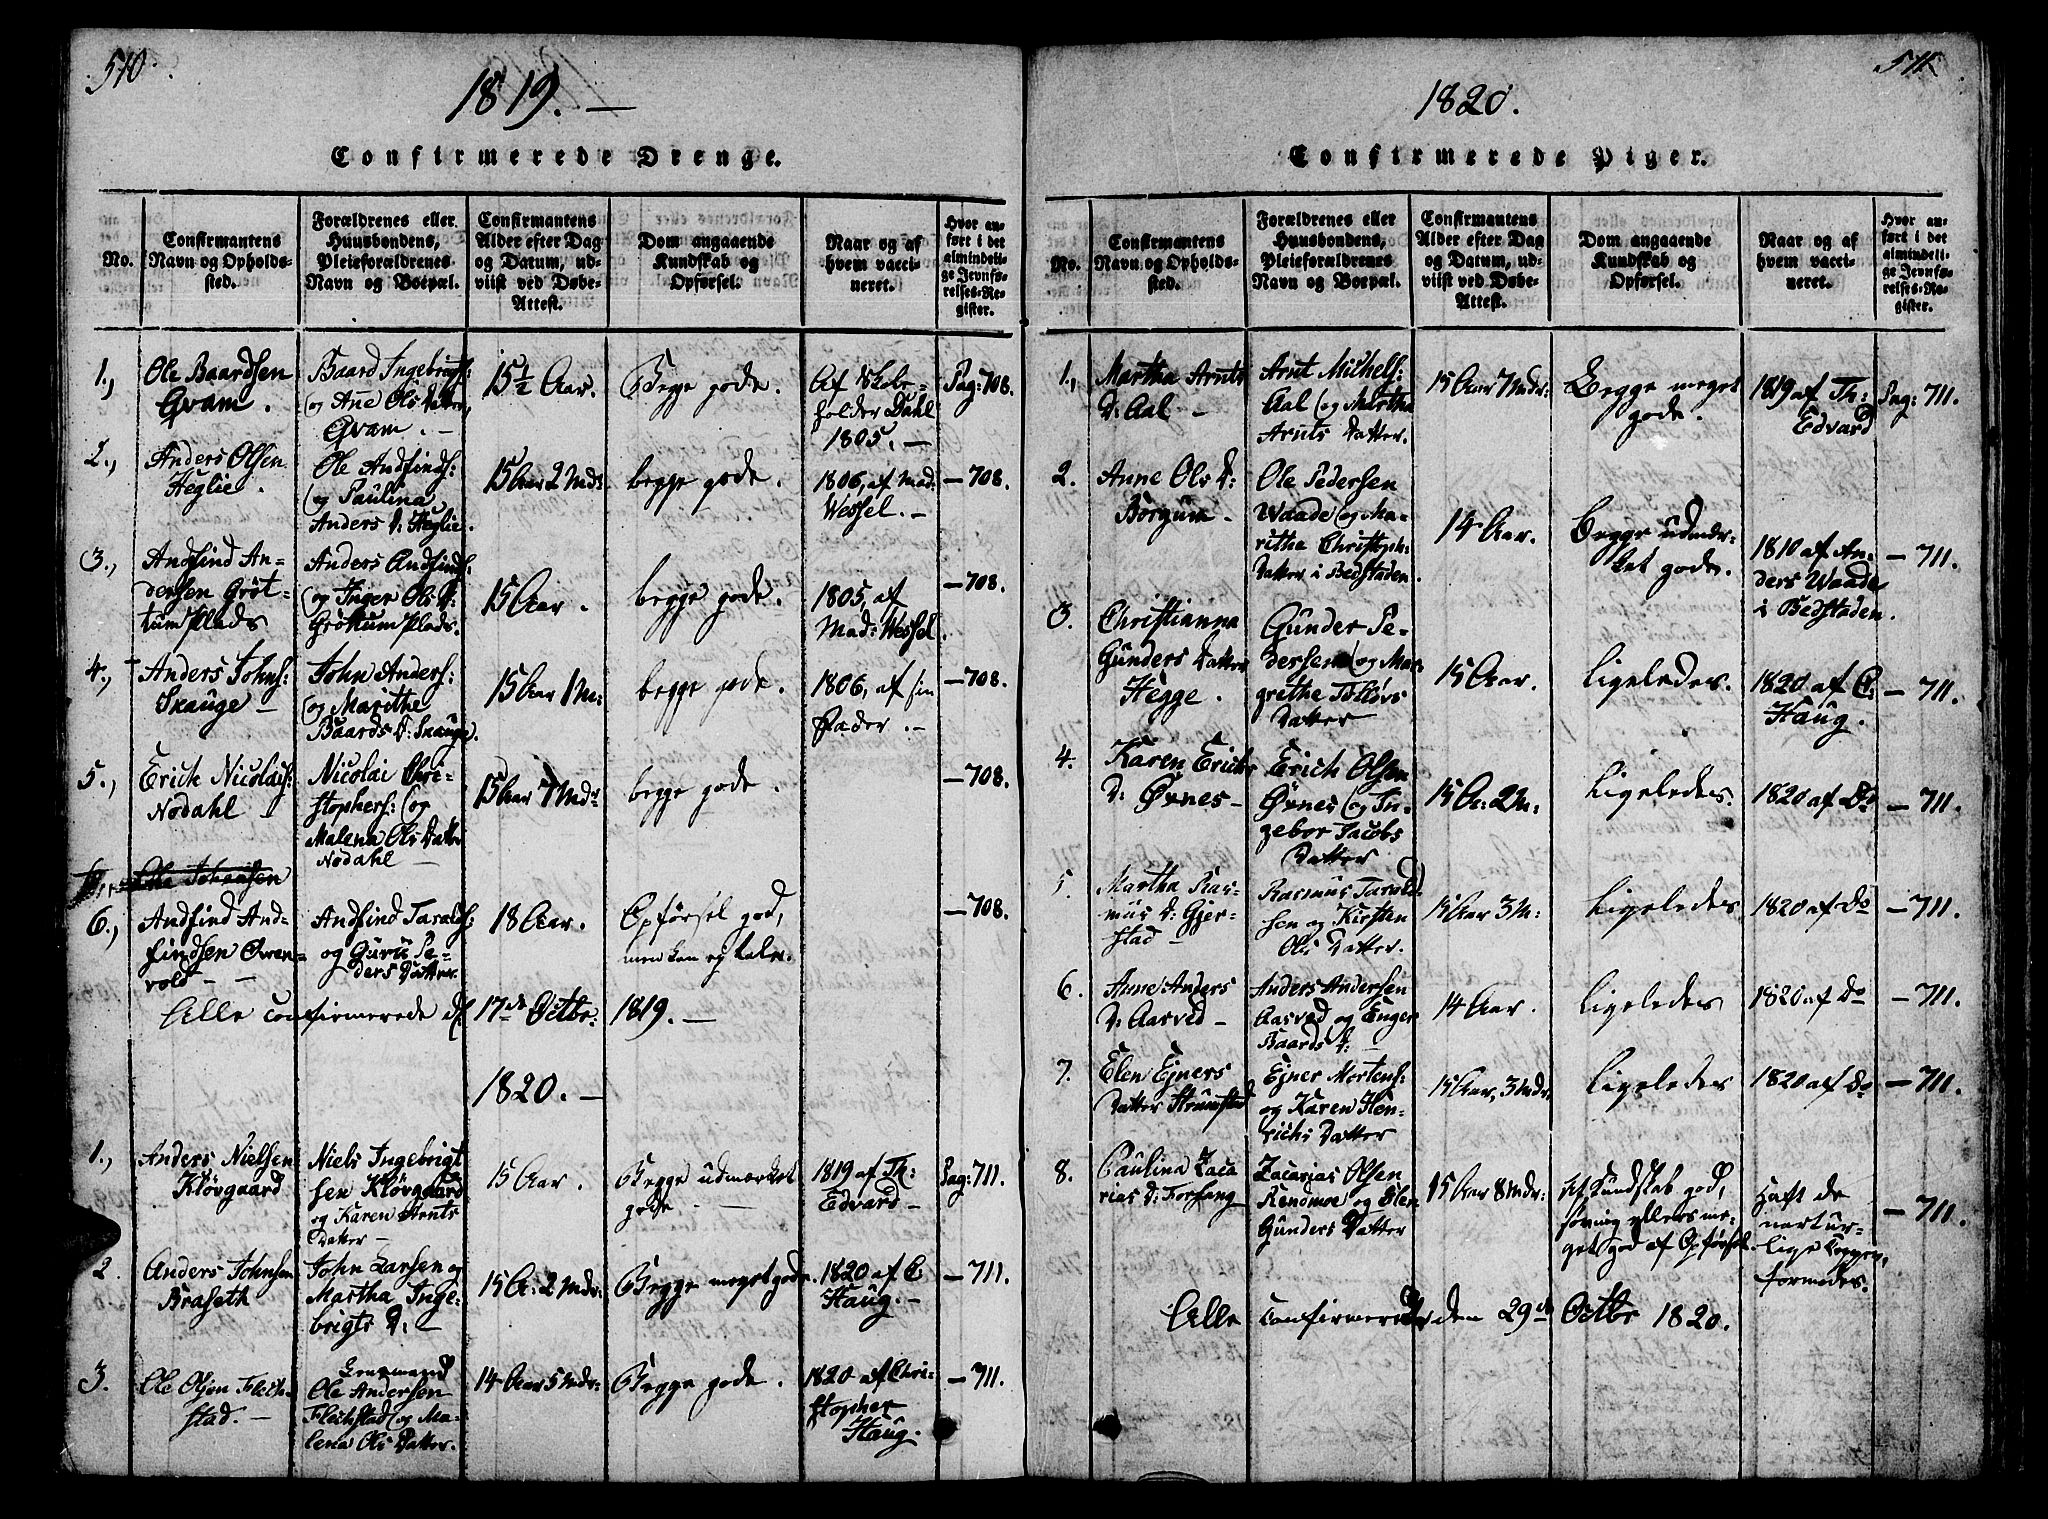 510.
1819. —
Confirmerede Drenge.
No.
Confirmantens
Navn og Opholds-
sted.
Forældrenes eller
Huusbondens,
Pleieforældrenes
Navn og Boepæl.
Confirmantens
Alder efter Dag
og Datum, ud-
viist ved Døbe-
Attest.
Dom angaaende
Kundskab og
Opførsel.
Naar og af
hvem vacci-
neret.
Hvor an-
ført i det
almindeli-
ge Jevnfø-
relses-Re-
gister.
1.,
Ole Baardsen
Qvam.
Baard Ingebrigts:
og Ane Ols Datter,
Qvam. —
15½ Aar.
Begge gode.
Af Skole-
holder Dahl
1805. —
Pag: 708.
2.,
Anders Olsen
Heglie.
Ole Andfinds:
og Paulina
Anders D: Heglie.
15 Aar 2 Mdr:
begge gode.
1806, af Mad:
Wessel. —
— 708.
3.,
Andfind An-
dersen Gröt-
tumplads
Anders Andfinds:
og Inger Ols D:
Gröttumplads.
15 Aar.
begge gode.
1805, af
Mad: Wessel.
— 708.
4.,
Anders Johns:
Skauge —
John Anders:
og Marithe
Baards D: Skauge.
15 Aar 1 M:
begge gode.
1806, af sin
Fader. —
— 708.
5.,
Erich Nicolais:
Nödahl —
Nicolai Chri-
stophers: og
Malena Ols Datter
Nödahl —
15 Aar 7 Mdr
begge gode.
— 708.
Johansen
6.,
Andfind And-
findsen Qven-
vold —
Andfind Taralds:
og Guru Pe-
ders Datter.
18 Aar.
Opførsel god,
— 708.
Alle confirmerede d. 17de Octbr: 1819. —
1820. —
1.,
Anders Nielsen
Klövgaard
Niels Ingebrigt
sen Klövgaard
og Karen Arnts
Datter —
15 Aar.
Begge udmærket
gode. —
1819 af Th:
Edvard —
Pag: 711.
2.
Anders Johnsen
Braseth
John Larsen og
Martha Inge-
brigts D: —
15 A: 2 Mdr:
Begge meget gode.
1820 af C
Haug. —
— 711.
3.
Ole Olsen Flech-
stad. —
Ole Andersen
Flechstad og Ma-
lena Ols Datter.
14 Aar 5 Mdr:
Begge gode.
1820 af Chri-
stopher
Haug.
— 711.
511.
1820.
Confirmerede Piger.
No.
Confirmantens
Navn og Opholds-
sted.
Forældrenes eller
Huusbondens,
Pleieforældrenes
Navn og Boepæl.
Confirmantens
Alder efter Dag
og Datum, ud-
viist ved Døbe-
Attest.
Dom angaaende
Kundskab og
Opførsel.
Naar og af
hvem vacci-
neret.
Hvor an-
ført i det
almindeli-
ge Jevnfø-
relses-Re-
gister.
1.,
Martha Arnts
D: Aal —
Arnt Michels:
Aal og Martha
Arnts Datter.
15 Aar 7 Mdr:
Begge meget
gode.
1819 af Th:
Edvard
Pag: 711.
2.
Anne Ols D:
Borgum —
Ole Pedersen
Waade og Ma-
rithe Christoph:
Datter i Bedstaden.
14 Aar.
Begge udmær-
ket gode.
1810 af An-
ders Waade
i Bedstaden.
— 711.
3.
Christianna
Gunders Datter
Hegge.
Gunder Pe-
dersen og Mar-
grethe Tollövs
Datter
15 Aar.
Ligeledes.
1820 af C:
Haug.
— 711.
4.
Karen Erichs
D: Övnes —
Erich Olsen
Övnes og In-
gebor Jacobs
Datter
15 A: 2 M:
Ligeledes.
1820 af Do
— 711.
5.
Martha Ras-
mus D: Gjer-
stad —
Rasmus Tarald-
sen og Kirsten
Ols Datter.
15 Aar 3 M:
Ligeledes
1820 af Do
— 711.
6.
Anne Anders
D: Aasved —
Anders Andersen
Aasved og Enger
Baards D: —
14 Aar.
Ligeledes
1820 af Do
— 711.
7.
Elen Ejners
Datter Strumstad
Ejner Mortens:
og Karen Hen-
richs Datter
15 Aar, 3 Mdr.
Ligeledes
1820 af Do
— 711.
8.
Paulina Zaca
rias D: Forfang
Zacarias Olsen
Rendmoe og Elen
Gunders Datter
15 Aar 8 Mdr:
af Kundskab god,
get god af Opførsel
Haft de
natur-
lige Kopper,
— 711.
Alle confirmerede den 29de Octbr 1820.